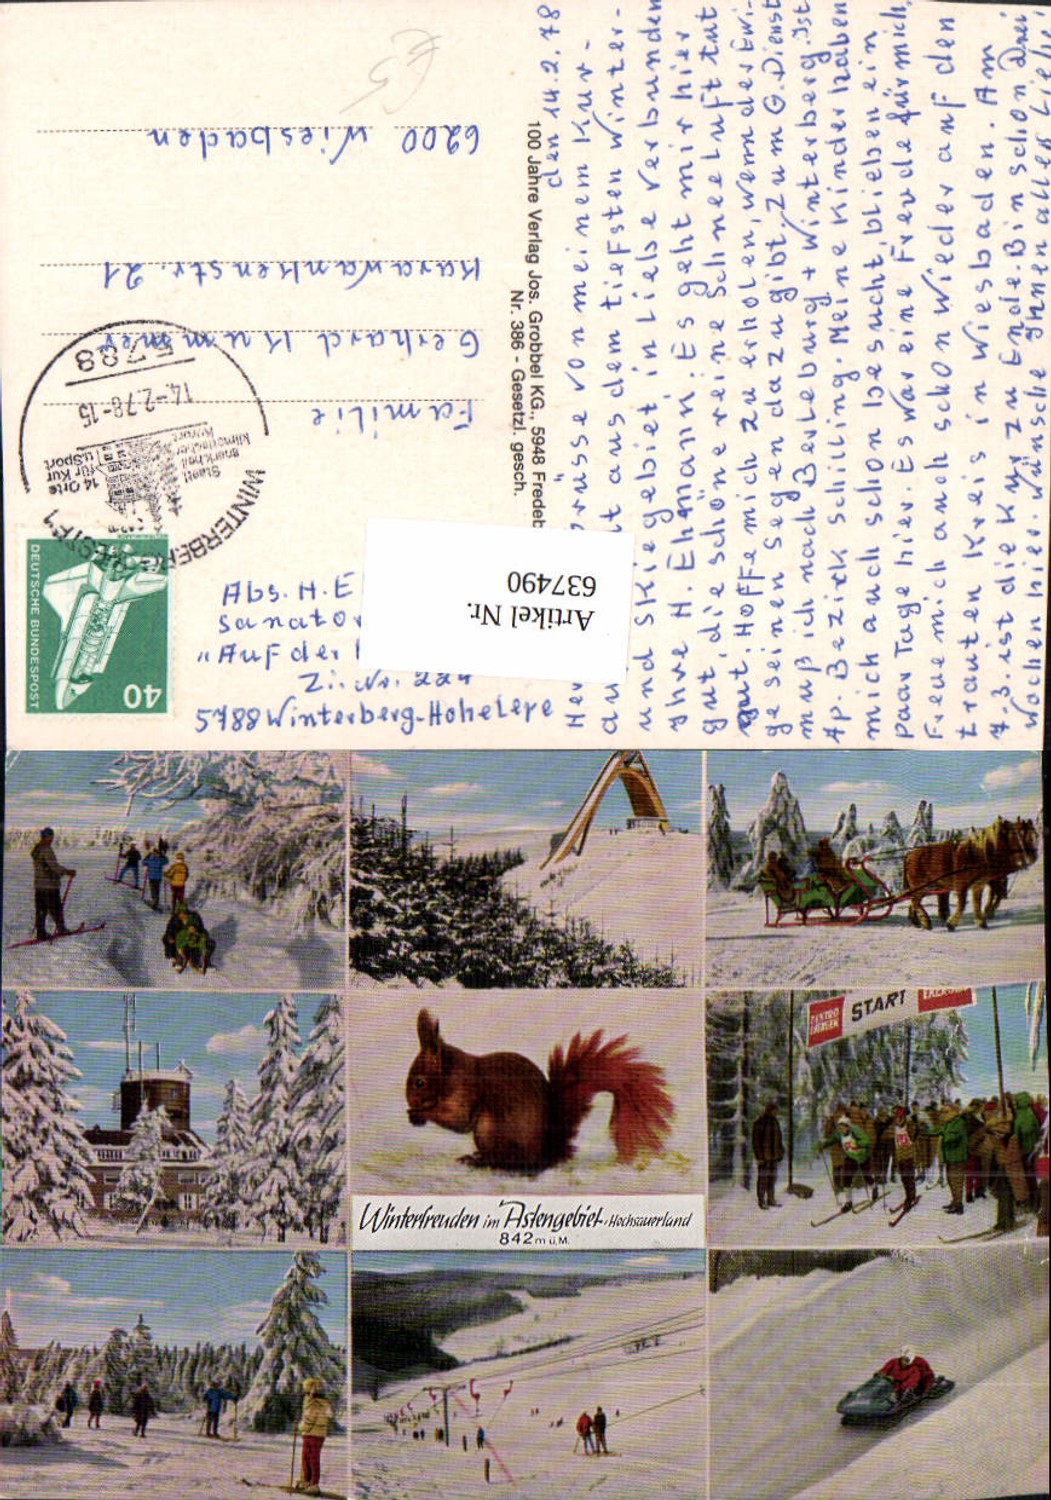 Familie
Gerhard Kummer
Karawankenstr. 21
6200 Wiesbaden
5788
14.-2.78-15
14 Orte
für Kur
u. Sport
Stadt
klimatischer
Kurort
WINTERBERG
40
DEUTSCHE BUNDESPOST
Abs. H. E
Sanator
"Auf der
5788 Winterberg-Hoheleye
Artikel Nr.
637490
100 Jahre Verlag Jos. Grobbel KG., 5948 Fredeb
Nr. 386 - Gesetzl. gesch.
den 14.2.78
Grüsse von meinem Kur-
aus dem tiefsten Winter-
und Skiegebiet in Liebe verbunden
Ihre H. Ehmann. Es geht mir hier
gut, die schöne reine Schneeluft tut
gut. Hoffe mich zu erholen, wenn der Ewi-
ge seinen Segen dazu gibt. Zum G. Dienst
muß ich nach Berleburg + Winterberg. Ist
Ap. Bezirk Schilling. Meine Kinder haben
mich auch schon besucht, blieben ein
paar Tage hier. Es war eine Freude für mich,
freue mich auch schon wieder auf den
trauten Kreis in Wiesbaden. Am
7.3. ist die Kur zu Ende. Bin schon drei
Wochen hier. Wünsche Ihnen alles Liebe,
START
Winterfreuden im Astengebiet-Hochsauerland
842 m ü.M.